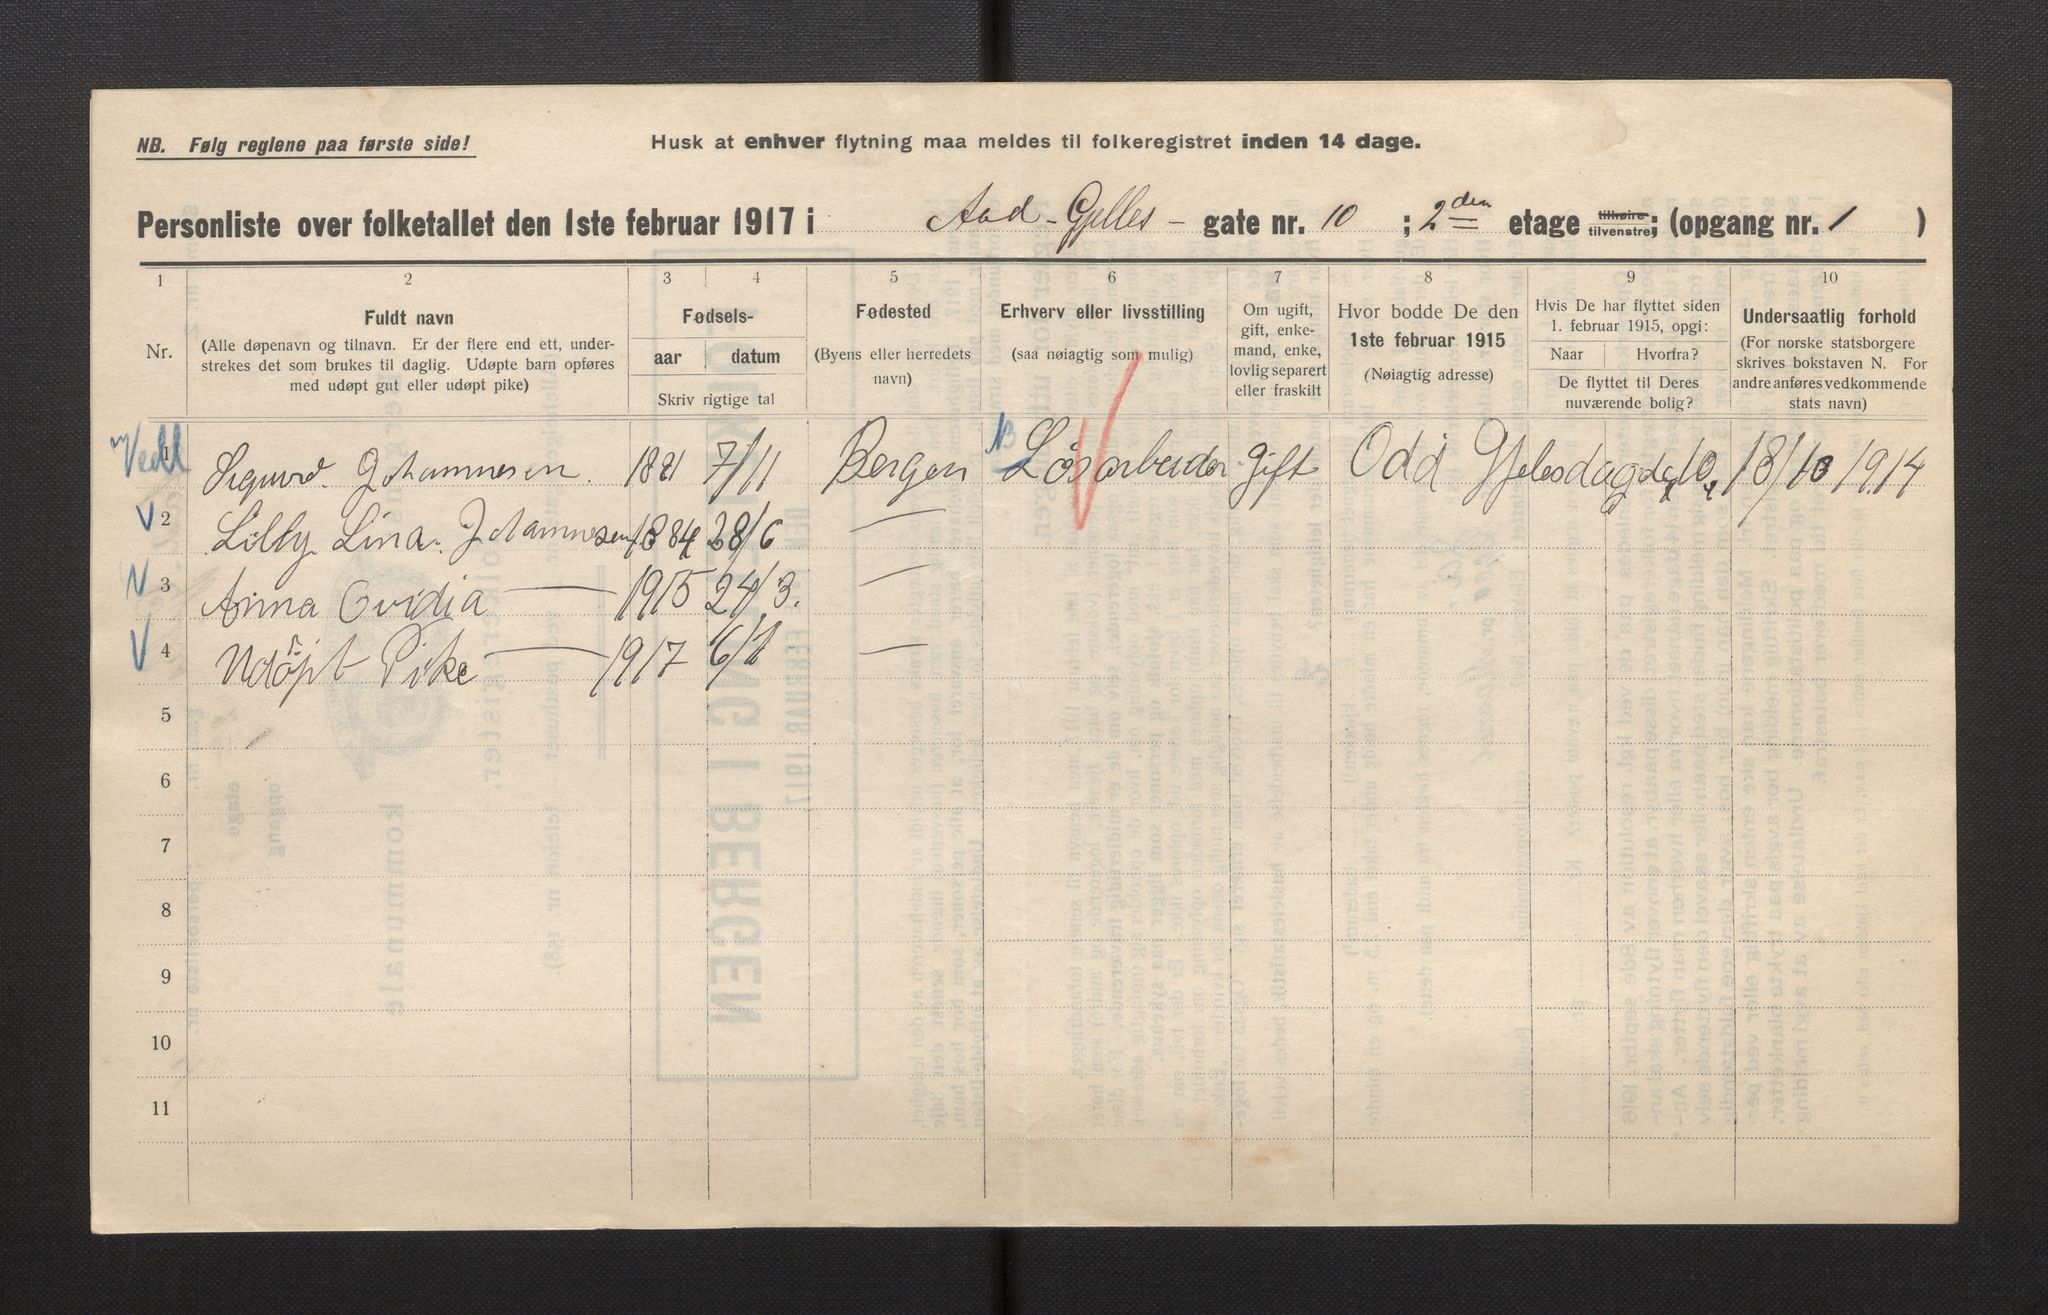 NB. Følg reglene paa første side!
Husk at enhver flytning maa meldes til folkeregistret inden 14 dage.
Personliste over folketallet den 1ste februar 1917 i Aad-Gjelles- gate nr. 10 ; 2den etage tilhøire tilvenstre; (opgang nr. 1 )
1 2 3 4 5 6 7 8 9 10
Nr.
Fuldt navn
(Alle døpenavn og tilnavn. Er der flere end ett, under-
strekes det som brukes til daglig. Udøpte barn opføres
med udøpt gut eller udøpt pike)
Fødsels-
aar datum
Skriv rigtige tal
Fødested
(Byens eller herredets
navn)
Erhverv eller livsstilling
(saa nøiagtig som mulig)
Om ugift,
gift, enke-
mand, enke,
lovlig separert
eller fraskilt
Hvor bodde De den
1ste februar 1915
(Nøiagtig adresse)
Hvis De har flyttet siden
1. februar 1915, opgi:
Naar Hvorfra?
De flyttet til Deres
nuværende bolig?
Undersaatlig forhold
(For norske statsborgere
skrives bokstaven N. For
andre anføres vedkommende
stats navn)
1 Sigurd Johannesen. 1881 7/11 Bergen Løsarbeider gift Odd Gjelesdagde 10 18/10 1914
2 Lilly Lina Johannesen 1884 28/6 —
3 Anna Ovidia — 1915 24/3. —
4 Udöpt Pike — 1917 6/1 —
5
6
7
8
9
10
11